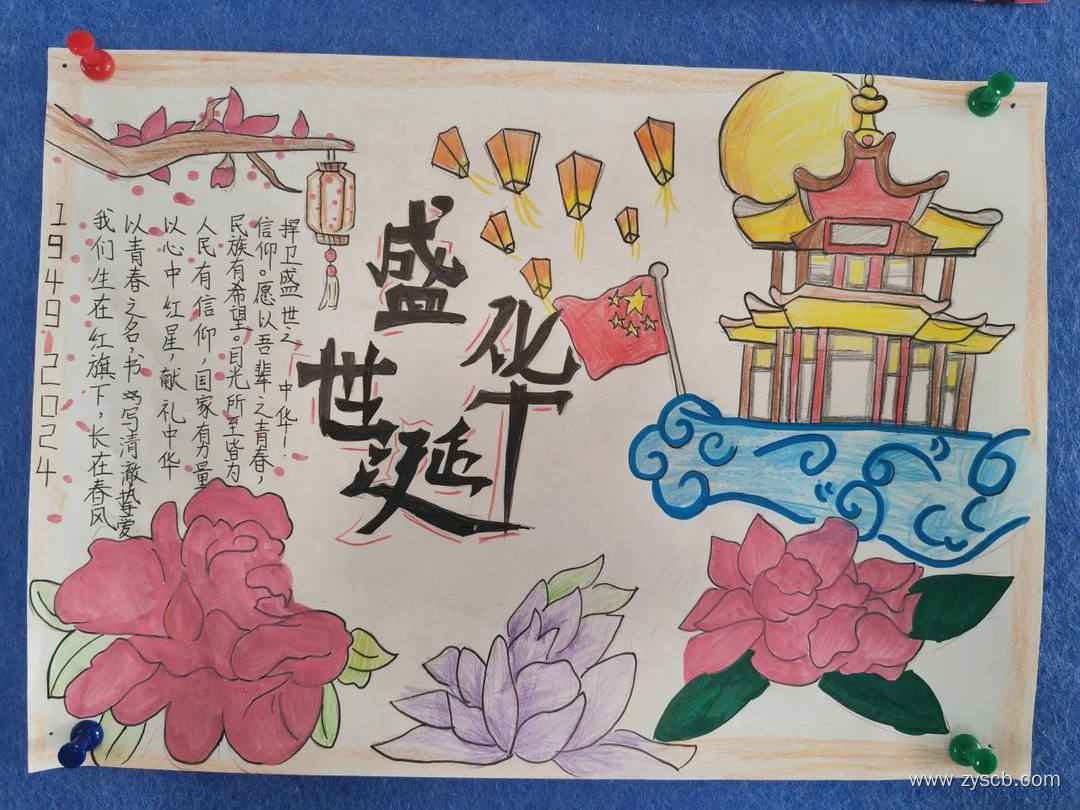 1949 2024
我们生在红旗下，长在春风
以青春之名书写清澈挚爱
以心中红星，献礼中华
人民有信仰，国家有力量
民族有希望。目光所至皆为
信仰。愿以吾辈之青春，
捍卫盛世之中华！
盛世华诞
www.zyscb.com